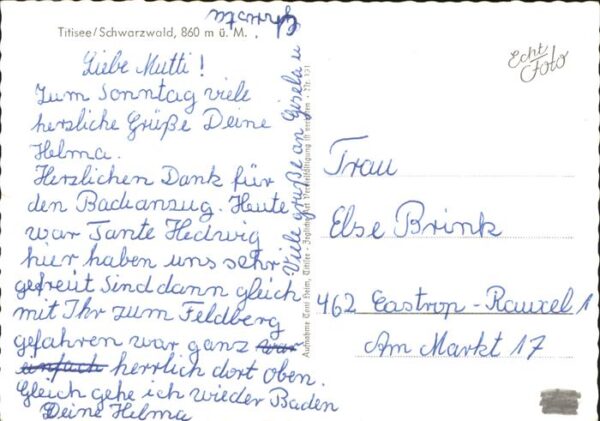 Titisee/Schwarzwald, 860 m ü. M.
Liebe Mutti!
Zum Sonntag viele
herzliche Grüße Deine
Helma.
Herzlichen Dank für
den Badeanzug. Heute
war Tante Hedwig
hier haben uns sehr
gefreut sind dann gleich
mit Ihr zum Feldberg
gefahren war ganz war
einfach herrlich dort oben.
Gleich gehe ich wieder Baden
Deine Helma
Viele grüße an Gisela u
Christa
Echt
Foto
Frau
Else Brink
462 Castrop-Rauxel 1
Am Markt 17